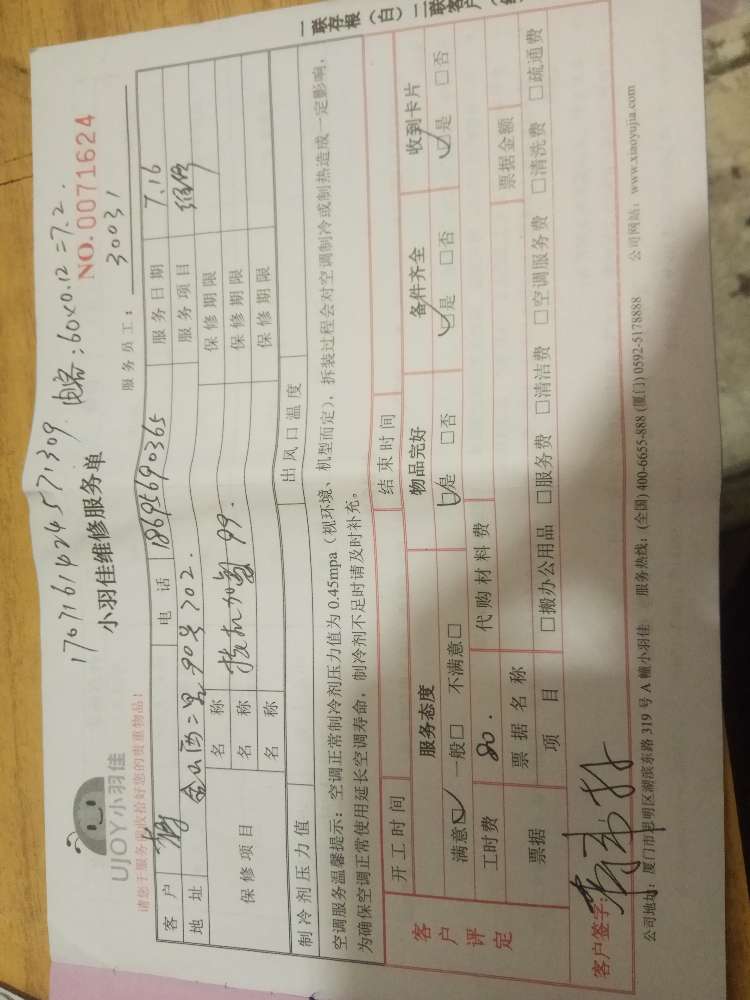 一联存根（白）二联客户
17071614244571309 电客：60×0.12=7.2.
UJOY小羽佳
小羽佳维修服务单
NO.0071624
请您于服务前收拾好您的贵重物品！
服务员工： 30031
客户 电话 18695690365 服务日期 7.16
地址 金山西二里90号702. 服务项目 维修
保修项目 名称 保修期限
名称 挂机加氟 99. 保修期限
名称 保修期限
制冷剂压力值 出风口温度
空调服务温馨提示：空调正常制冷剂压力值为 0.45mpa（视环境、机型而定），拆装过程会对空调制冷或制热造成一定影响，
为确保空调正常使用延长空调寿命，制冷剂不足时请及时补充。
开工时间 结束时间
客户评定 服务态度 物品完好 备件齐全 收到卡片
满意☑ 一般□ 不满意□ ☑是 □否 ☑是 □否 ☑是 □否
工时费 80. 代购材料费
票据 票据名称 票据金额
项目 □搬办公用品 □服务费 □清洁费 □空调服务费 □清洗费 □疏通费
客户签字：
公司地址：厦门市思明区湖滨东路 319 号 A 幢小羽佳 服务热线：(全国) 400-6655-888 (厦门) 0592-5178888 公司网站：www.xiaoyujia.com